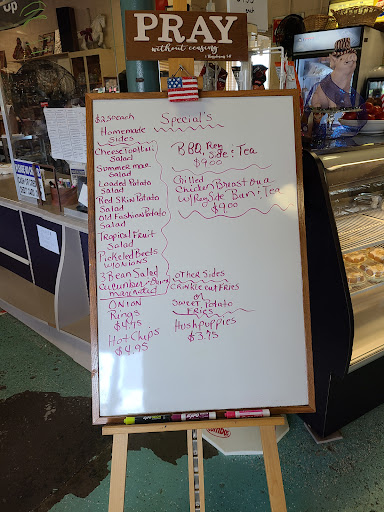 PRAY
without ceasing
$2.50 each
Special's
Homemade
Sides
Cheese Tortellini
Salad
Summer mac.
Salad
Loaded Potato
Salad
Red Skin Potato
Salad
Old Fashion Potato
Salad
Tropical Fruit
Salad
Pickeled Beets
w/onions
3 Bean Salad
Cucumber-Onion
Onion
Rings
$4.95
Hot Chips
$4.95
BBQ, Reg
Side & Tea
$9.00
Chilled
Chicken Breast on a
Bun & Tea
$9.00
OTHER Sides
CRINKLE CUT FRIES
or
SWEET Potato
FRIES
Hushpuppies
$3.95